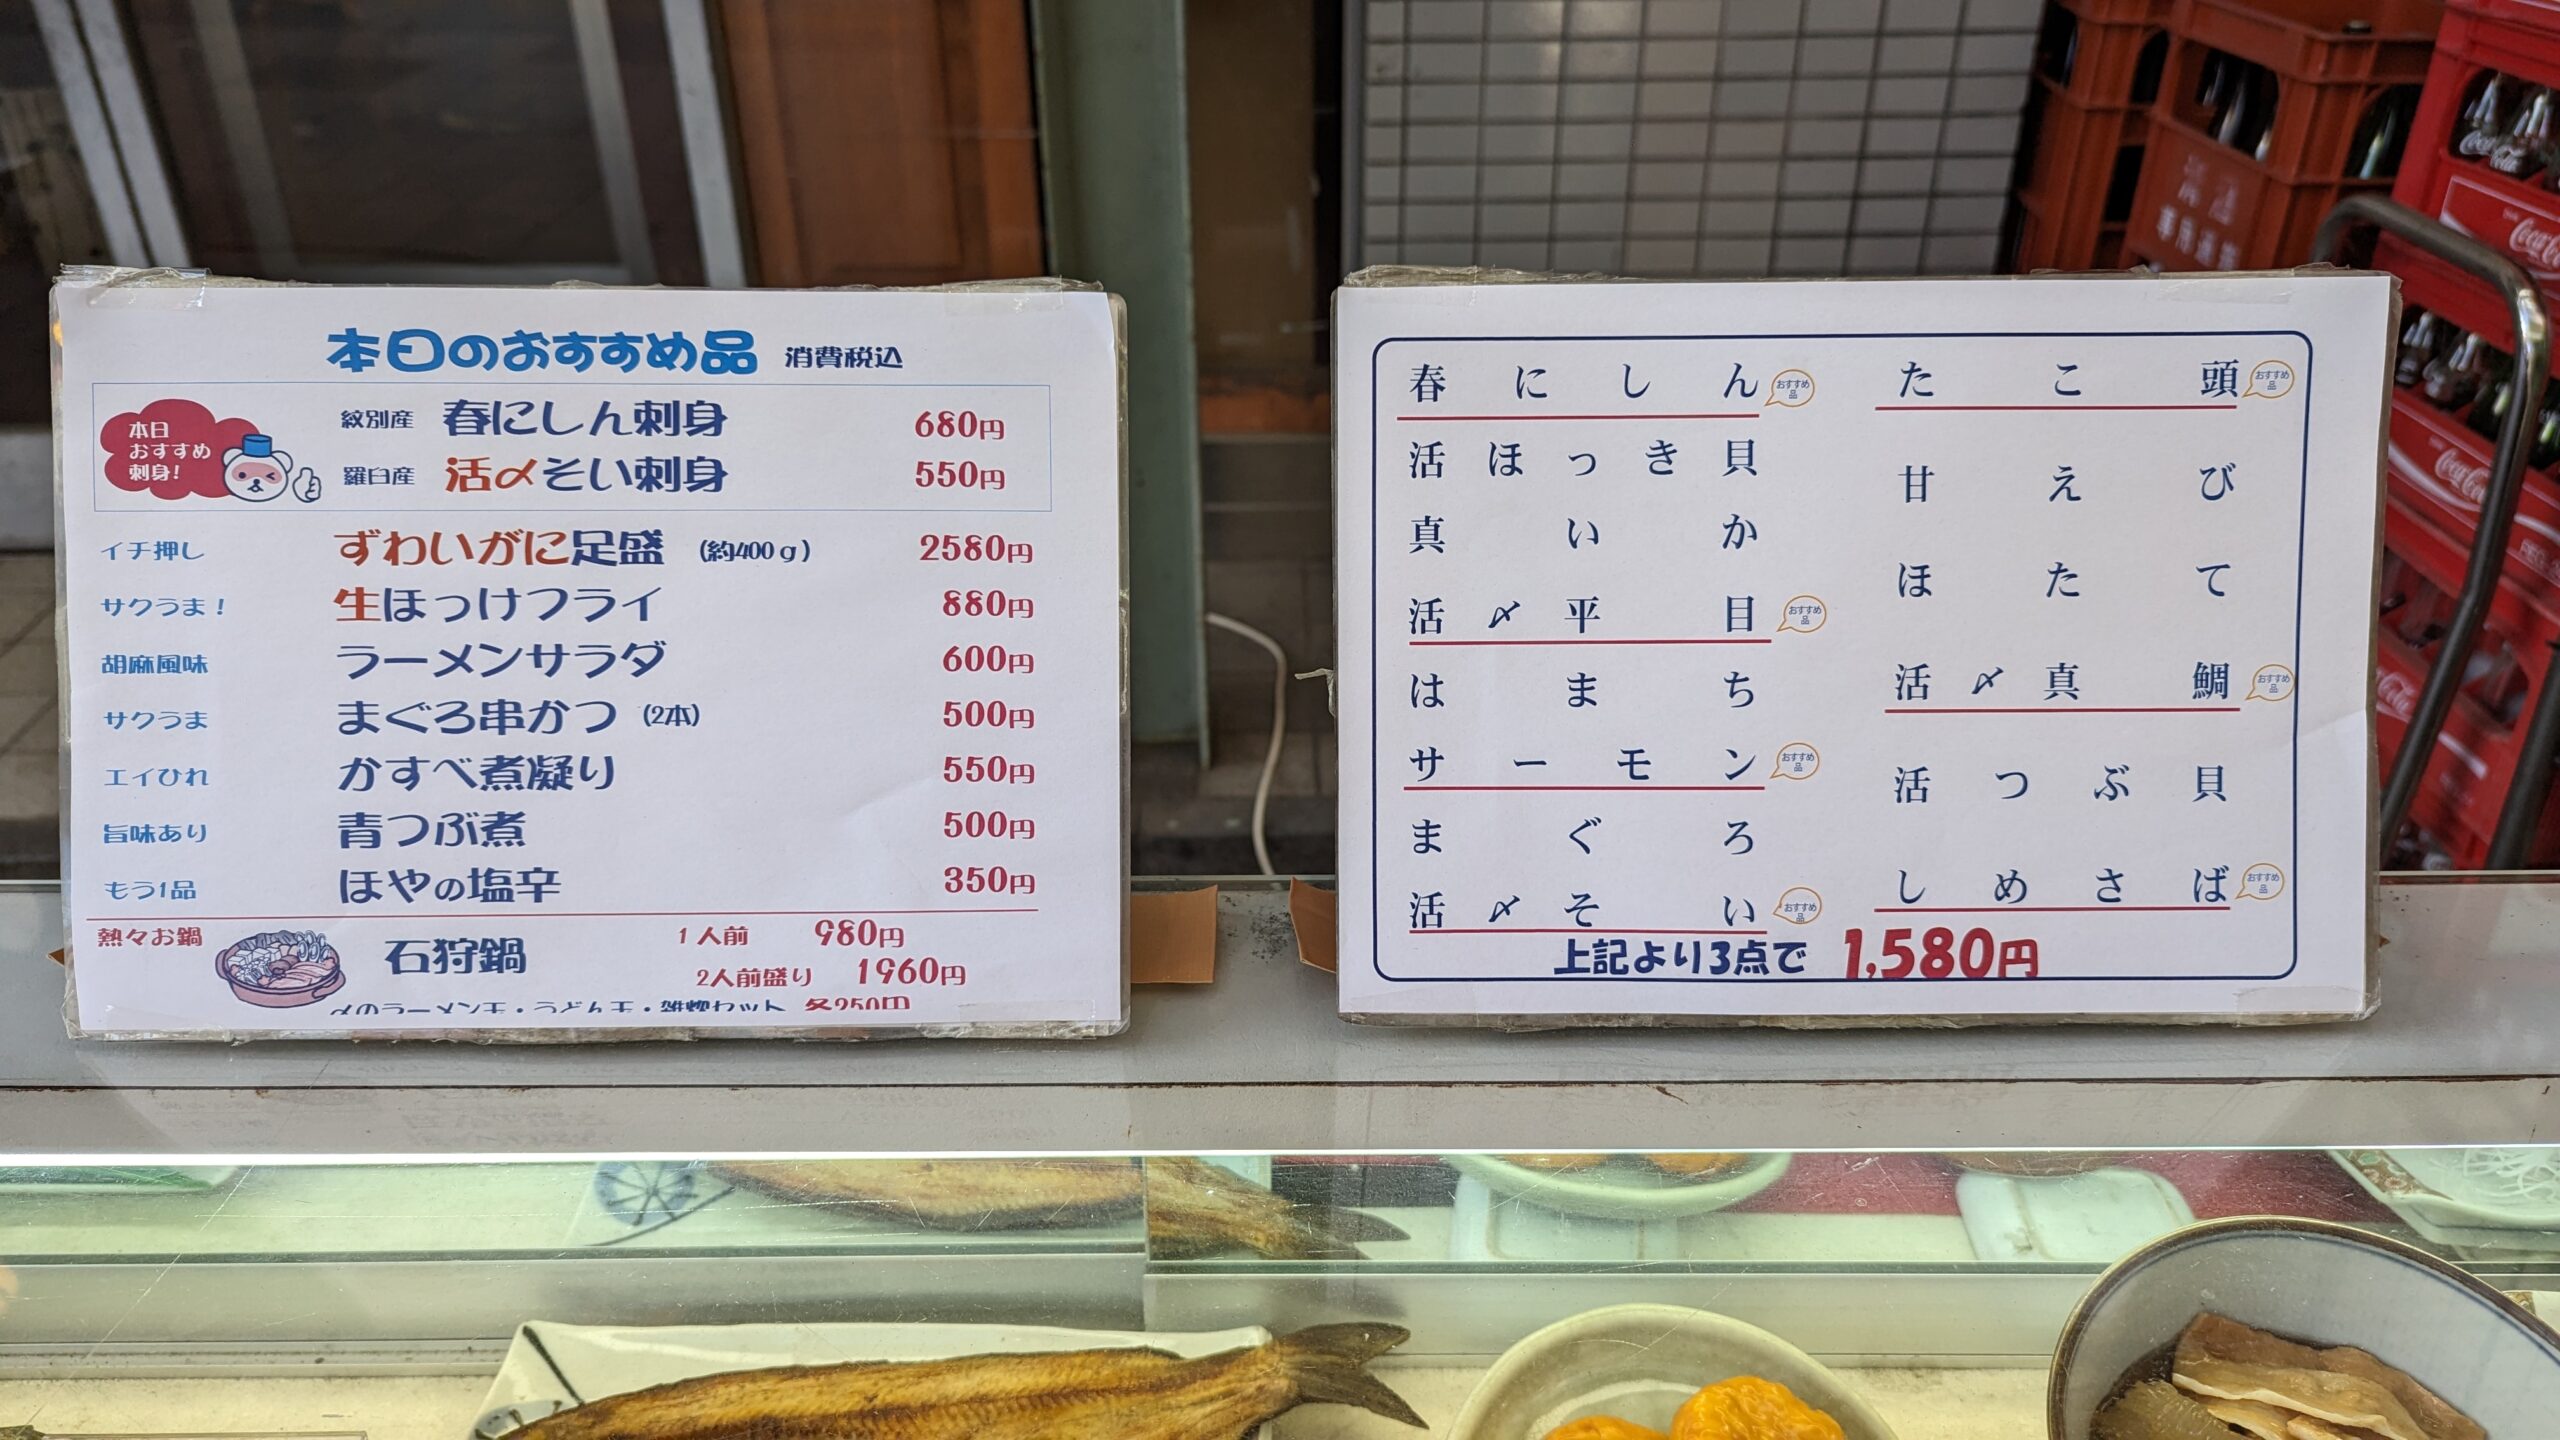 本日のおすすめ品 消費税込
本日
おすすめ
刺身!
紋別産 春にしん刺身 680円
羅臼産 活〆そい刺身 550円
イチ押し ずわいがに足盛 (約400g) 2580円
サクうま! 生ほっけフライ 880円
胡麻風味 ラーメンサラダ 600円
サクうま まぐろ串かつ (2本) 500円
エイひれ かすべ煮凝り 550円
旨味あり 青つぶ煮 500円
もう1品 ほやの塩辛 350円
熱々お鍋 石狩鍋 1人前 980円
2人前盛り 1960円
〆のラーメン玉・うどん玉・雑炊セット 各250円
春にしん おすすめ品
活ほっき貝
真いか
活〆平目 おすすめ品
はまち
サーモン おすすめ品
まぐろ
活〆そい おすすめ品
たこ頭 おすすめ品
甘えび
ほたて
活〆真鯛 おすすめ品
活つぶ貝
しめさば おすすめ品
上記より3点で 1,580円
Coca-Cola
Coca-Cola
Coca-Cola